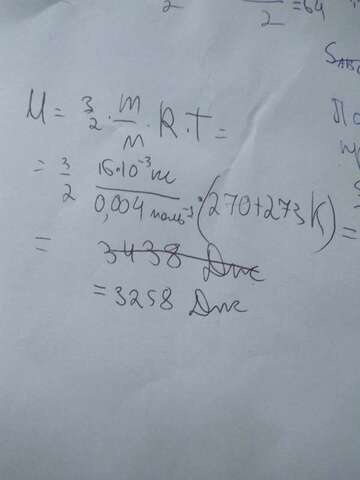 2
2
=64
S
U = 3/2 · m/M · R · T =
По
= 3/2 16·10⁻³ m / 0,004 моль⁻¹ · (270+273K) =
= 3438 Дж
= 3258 Дж